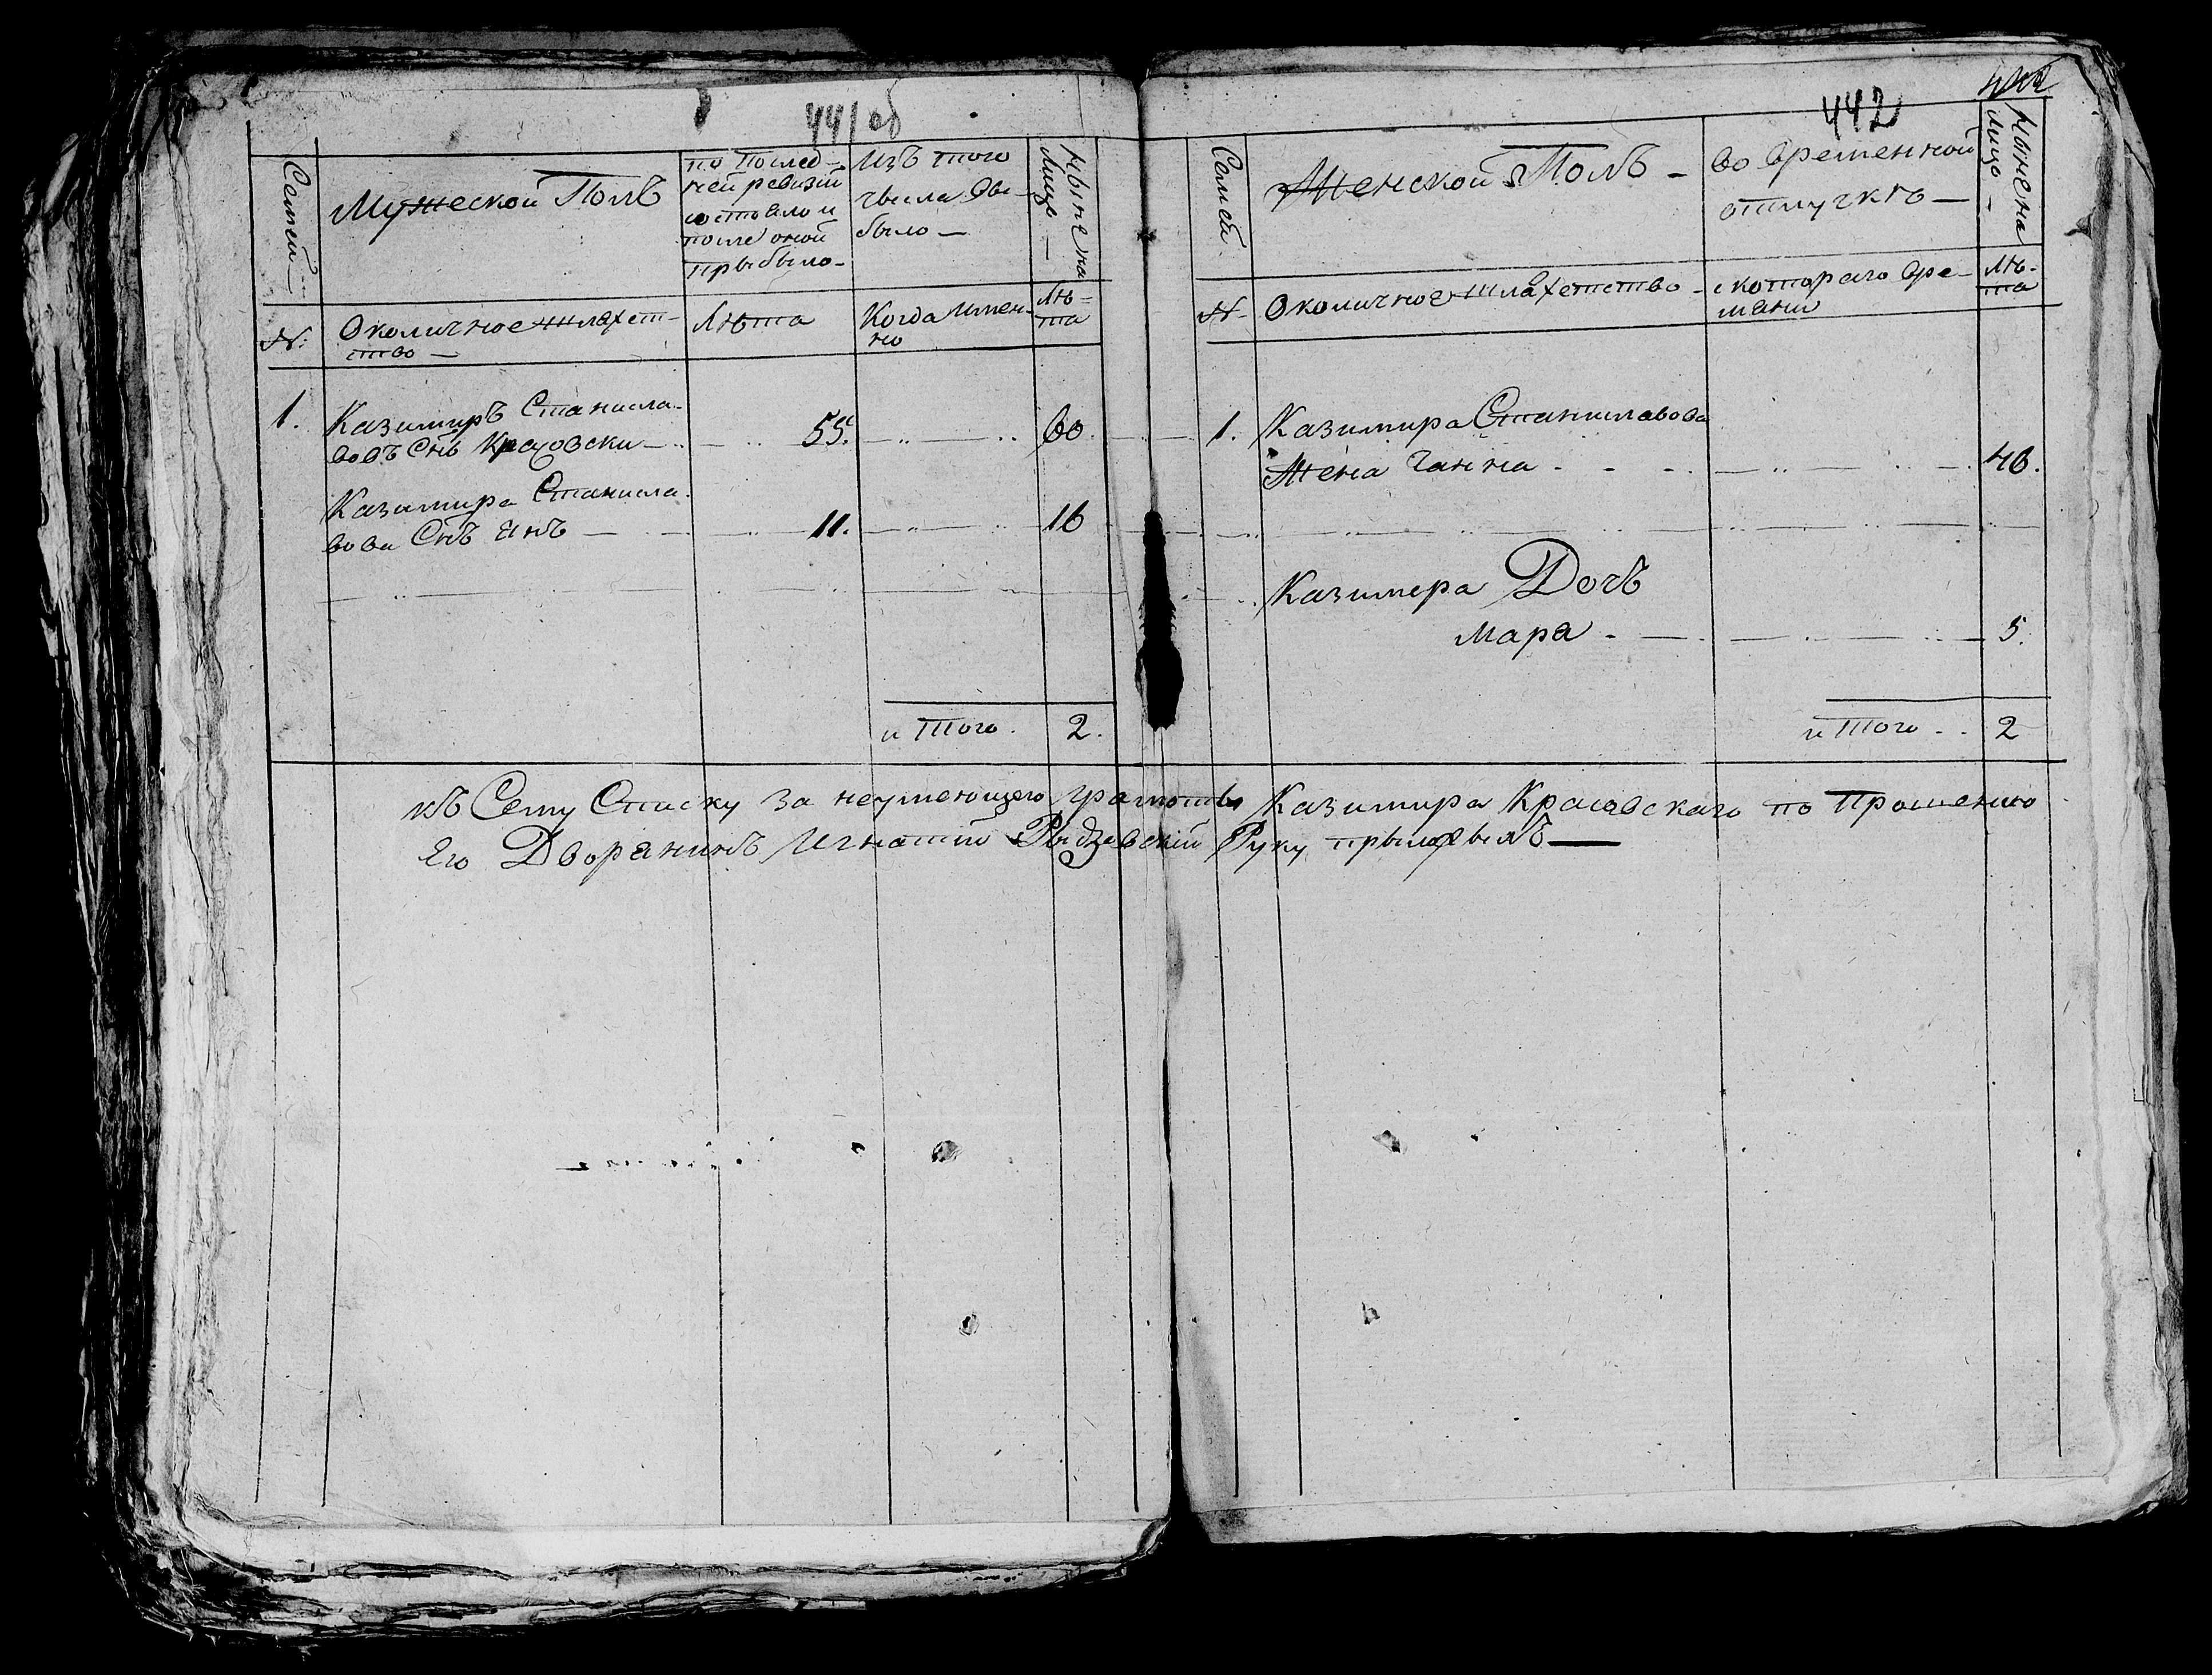 441 об
Семей
Мужеской Полъ
по послед-
ней ревизіи
состояло и
после оной
прыбыло-
Изъ того
числа вы-
было-
Ныне на
Лицо-
№:
Околичное шляхет-
ство-
Лѣта
Когда имен-
но
Лѣ-
та
1.
Казимиръ Станисла-
вовъ Снъ Красовски
55.
60.
Казимира Станисла-
вова Снъ Янъ
11.
16
и того.
2.
442
442
Семей
Женской Полъ-
во временной
отлучкѣ-
Ныне на
Лицо-
№-
Околичное шляхетство-
с котораго вре-
мени
Лѣ-
та
1.
Казимира Станиславова
Жена Ганна
46.
Казимера Дочъ
Мара
5.
и того
2
къ Сему Списку за неумеющего грамоты Казимира Красовскаго по Прошению
Его Дворанинъ Игнатий Рыдзевский Руку прыложылъ